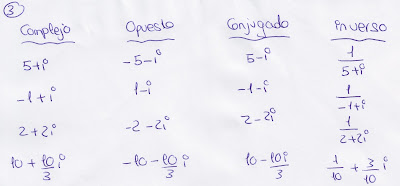 3
Complejo Opuesto Conjugado inverso
5+i -5-i 5-i 1/(5+i)
-1+i 1-i -1-i 1/(-1+i)
2+2i -2-2i 2-2i 1/(2+2i)
10 + 10/3 i -10 - 10/3 i 10 - 10i/3 1/10 + 3/10 i